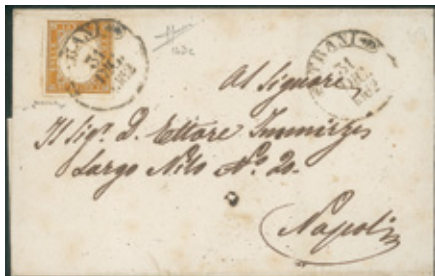 TRANI
31
DIC.
1862
TRANI
31
DIC.
1862
Al Signore
Il Sig. D. Ettore
Largo Nilo No. 20.
Napoli